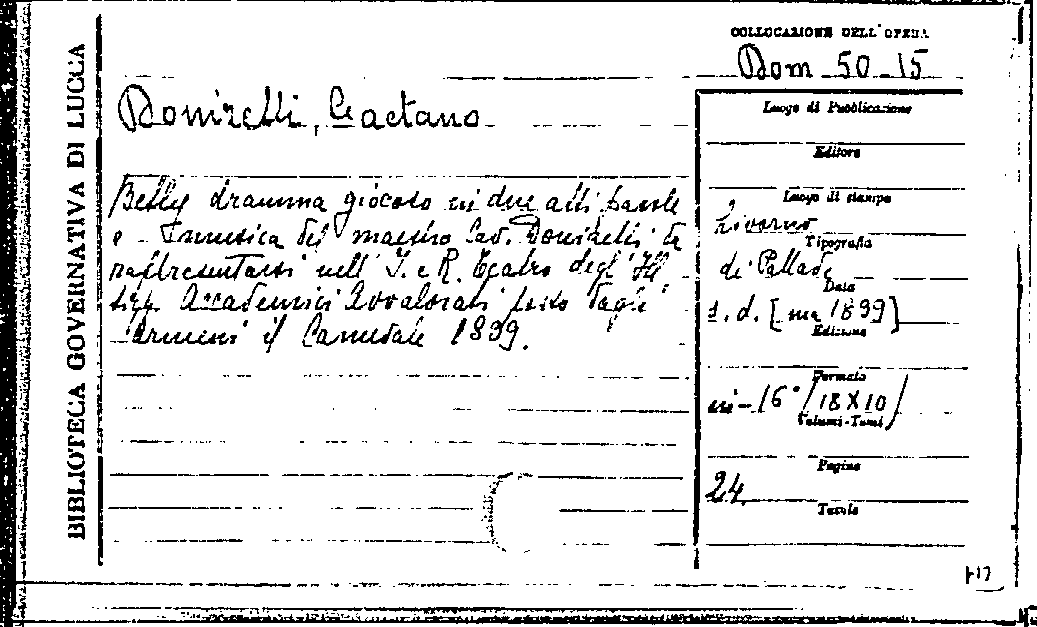 BIBLIOTECA GOVERNATIVA DI LUCCA
COLLOCAZIONE DELL'OPERA
Dom 50-15
Donizetti, Gaetano
Betly dramma giocoso in due atti parole
e musica del maestro Cav. Donizetti da
rappresentarsi nell'I. e R. Teatro degl'Ill
Accademici Avvalorati posto dagli
Armeni il Carnevale 1839.
Luogo di Pubblicazione
Editore
Luogo di stampa
Livorno
Tipografia
di Pallade
Data
s. d. [ma 1839]
Edizione
Formato
in-16° (18X10)
Volumi-Tomi
Pagine
24
Tavole